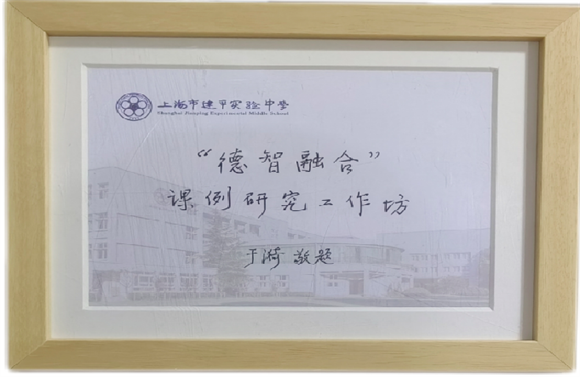 上海市建平实验中学
Shanghai Jianping Experimental Middle School
“德智融合”
课例研究工作坊
于漪 敬题